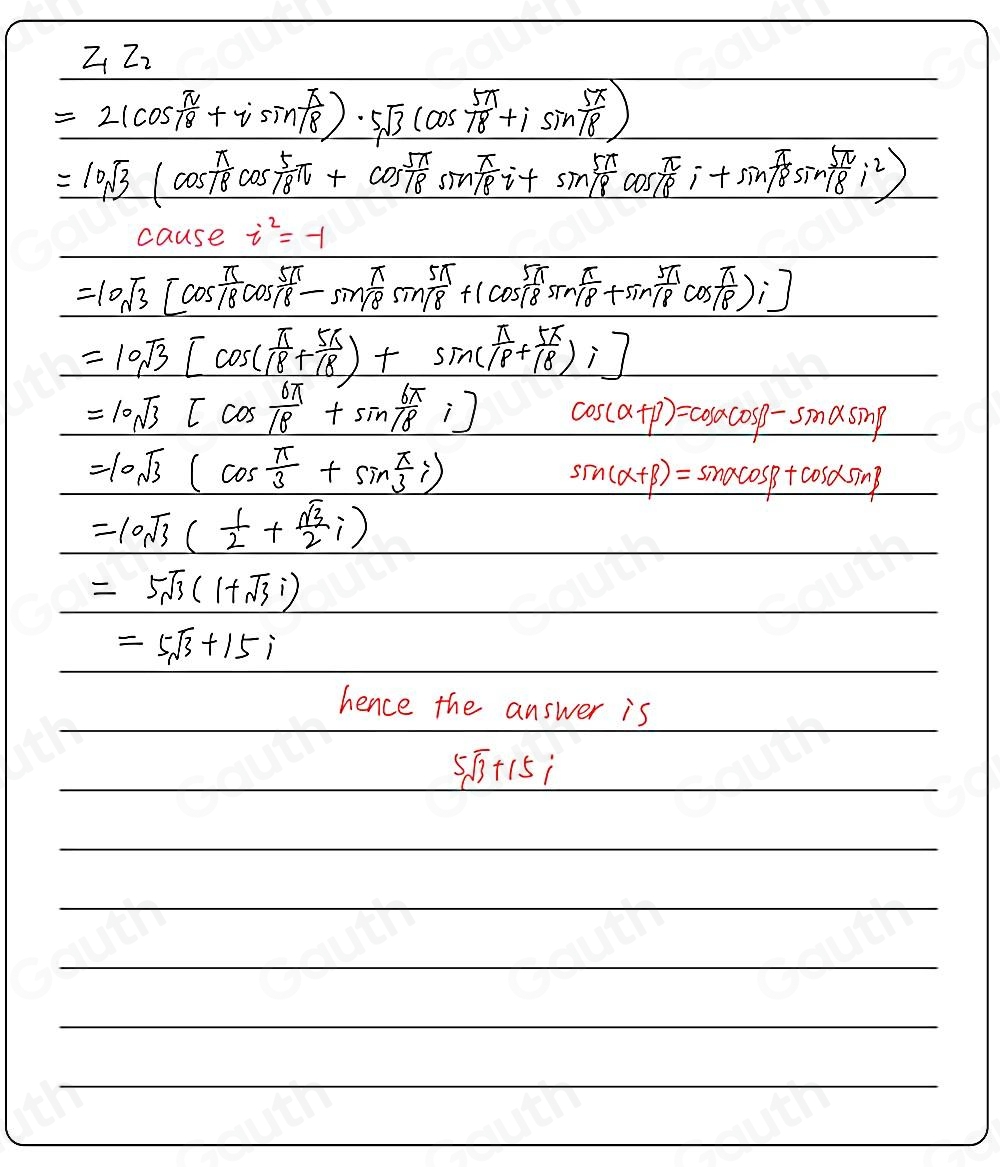 Z₁ Z₂
= 2(cos π/18 + i sin π/18) · 5√3 (cos 5π/18 + i sin 5π/18)
= 10√3 (cos π/18 cos 5/18 π + cos 5π/18 sin π/18 i + sin 5π/18 cos π/18 i + sin π/18 sin 5π/18 i²)
cause i² = -1
= 10√3 [cos π/18 cos 5π/18 - sin π/18 sin 5π/18 + (cos 5π/18 sin π/18 + sin 5π/18 cos π/18) i]
= 10√3 [cos(π/18 + 5π/18) + sin(π/18 + 5π/18) i]
= 10√3 [cos 6π/18 + sin 6π/18 i] cos(α+β)=cosαcosβ - sinαsinβ
= 10√3 (cos π/3 + sin π/3 i) sin(α+β) = sinαcosβ + cosαsinβ
= 10√3 (1/2 + √3/2 i)
= 5√3 (1 + √3 i)
= 5√3 + 15 i
hence the answer is
5√3 + 15 i